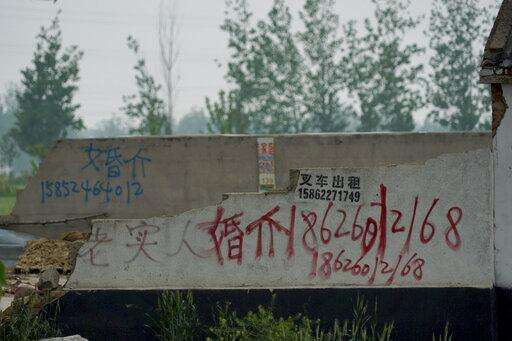 女婚介
15852464012
叉车出租
15862271749
老实人婚介18626012168
18626012168